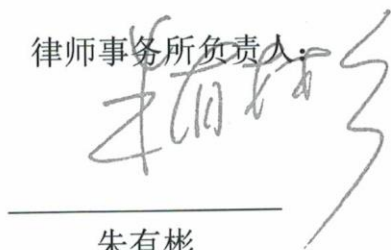 律师事务所负责人:
朱有彬
朱有彬